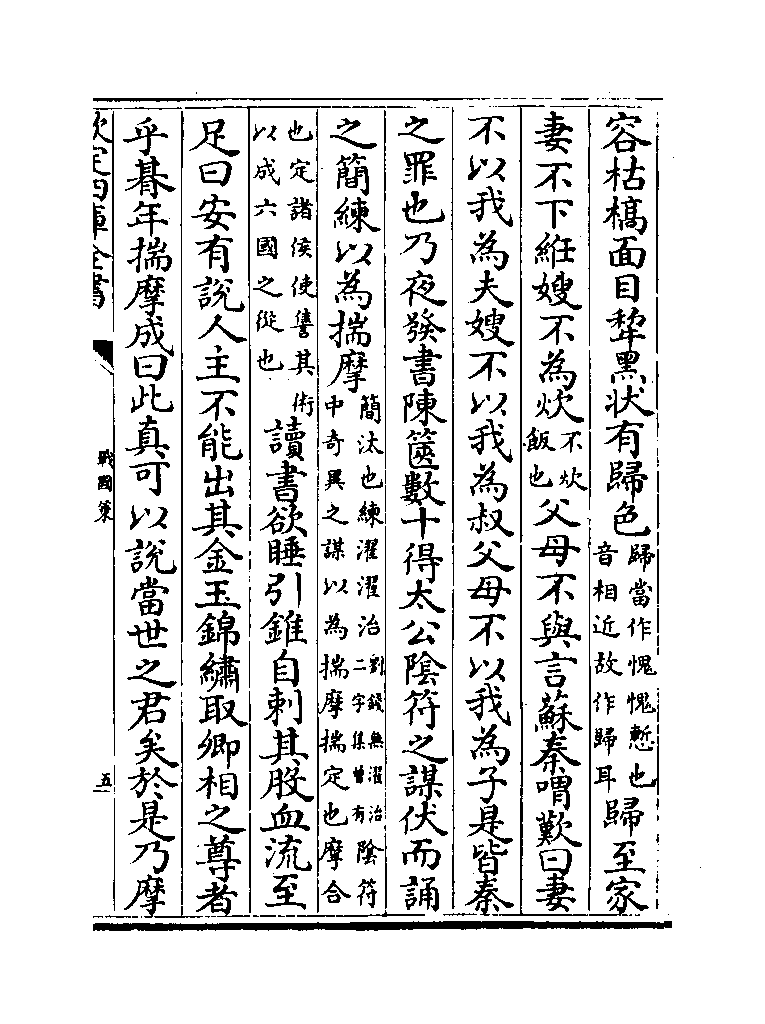 容枯槁面目犂黑状有歸色歸當作愧愧慙也音相近故作歸耳歸至家
妻不下絍嫂不為炊不炊飯也父母不與言蘇秦喟歎曰妻
不以我為夫嫂不以我為叔父母不以我為子是皆秦
之罪也乃夜發書陳篋數十得太公陰符之謀伏而誦
之簡練以為揣摩簡汰也練濯濯治劉錢無濯治二字集曾有陰符中奇異之謀以為揣摩揣定也摩合
也定諸侯使讐其術以成六國之從也讀書欲睡引錐自刺其股血流至
足曰安有說人主不能出其金玉錦繡取卿相之尊者
乎朞年揣摩成曰此真可以說當世之君矣於是乃摩
欽定四庫全書
戰國策
五